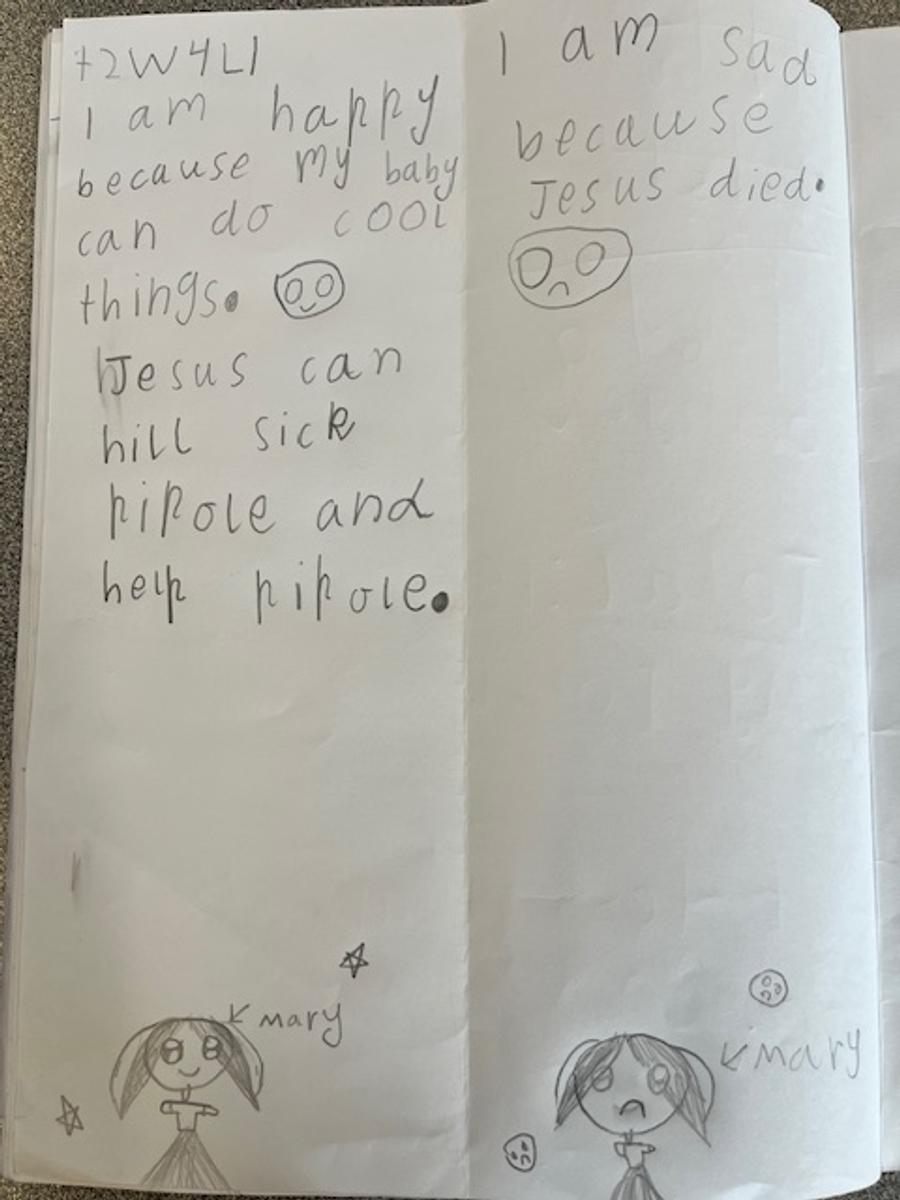 t2W4L1
I am happy
because my baby
can do cool
things.
Jesus can
hill sick
pipole and
help pipole.
mary
I am sad
because
Jesus died.
mary